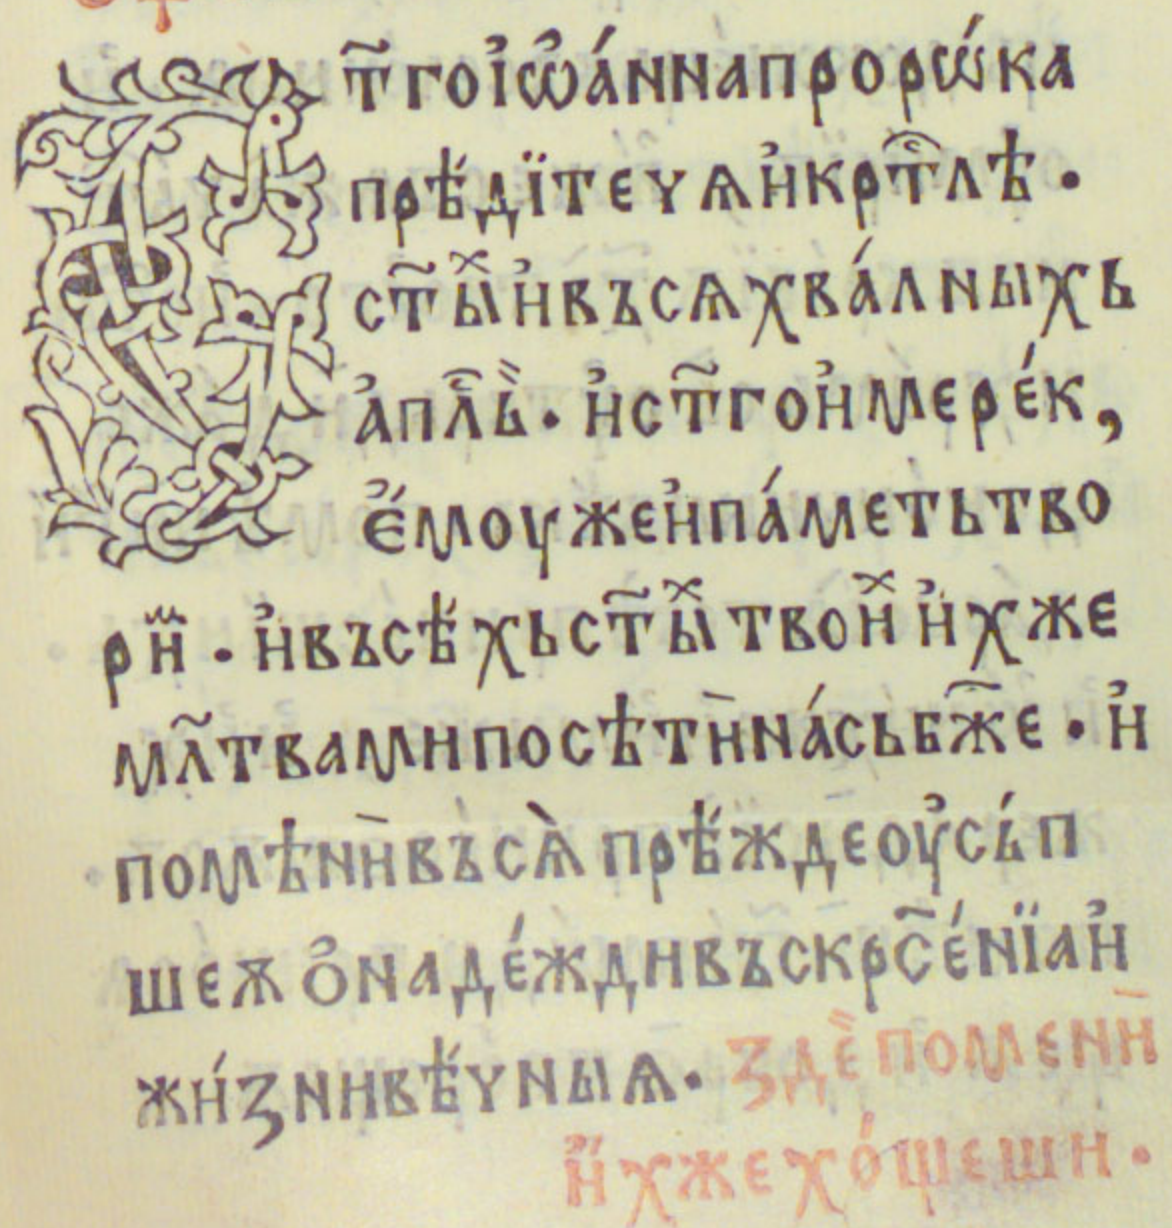 Ст҃го і҆ѡ҆а́нна прорѡ́ка
прѣ́дїтеѵѧ и҆ крⷭ҇т҃лѣ ·
ст҃ыⷯ и҆ въсѧ хва́лныхь
а҆пⷭ҇лъ̀ · и҆ ст҃го и҆мерек,
е҆́моу же и҆ па́меть тво
риⷨ · и҆ въсѣхь ст҃ыⷯ твоиⷯ и҆хже
мл҃твами посѣтѝ на́сь бж҃е · и҆
помѣнѝ въсѧ̀ прѣ́жде оу҆сьп
шеѫ о҆ наде́жди въскрⷭ҇е́нїа и҆
жи́зни вѣ́ѵныѧ · зде̏ помени̅
и҆хже хо́щеши ·